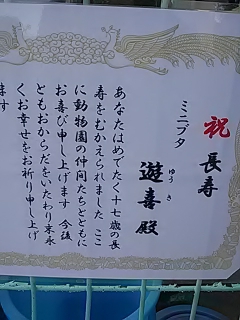 祝 長寿
ミニブタ
遊喜殿
ゆうき
あなたはめでたく十七歳の長
寿をむかえられました ここ
に動物園の仲間たちとともに
お喜び申し上げます 今後
ともおからだをいたわり末永
くお幸せをお祈り申し上げ
ます